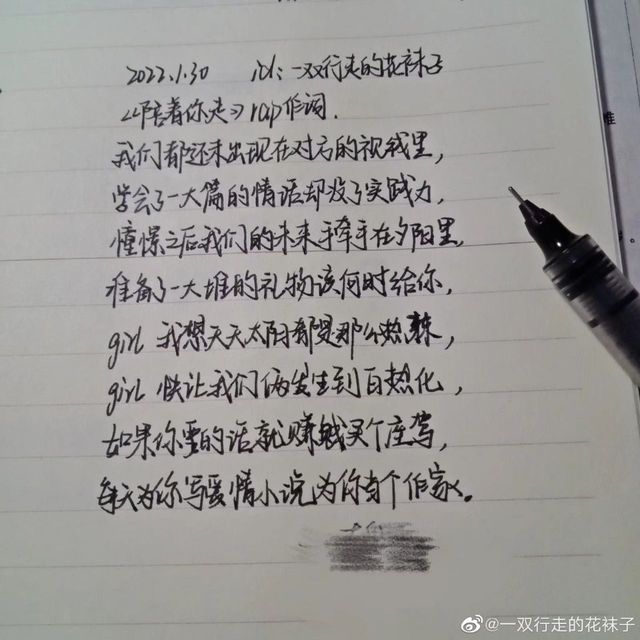 2022.1.30 id:一双行走的花袜子
《陪着你走》rap作词.
我们都还未出现在对方的视线里,
学会了一大篇的情话却没了实践力,
憧憬之后我们的未来手牵手在夕阳里,
准备了一大堆的礼物该何时给你,
girl 我想天天太阳都是那么热辣,
girl 快让我们俩发生到白热化,
如果你要的话就赚钱买个座驾,
每天为你写爱情小说为你当个作家。
@一双行走的花袜子